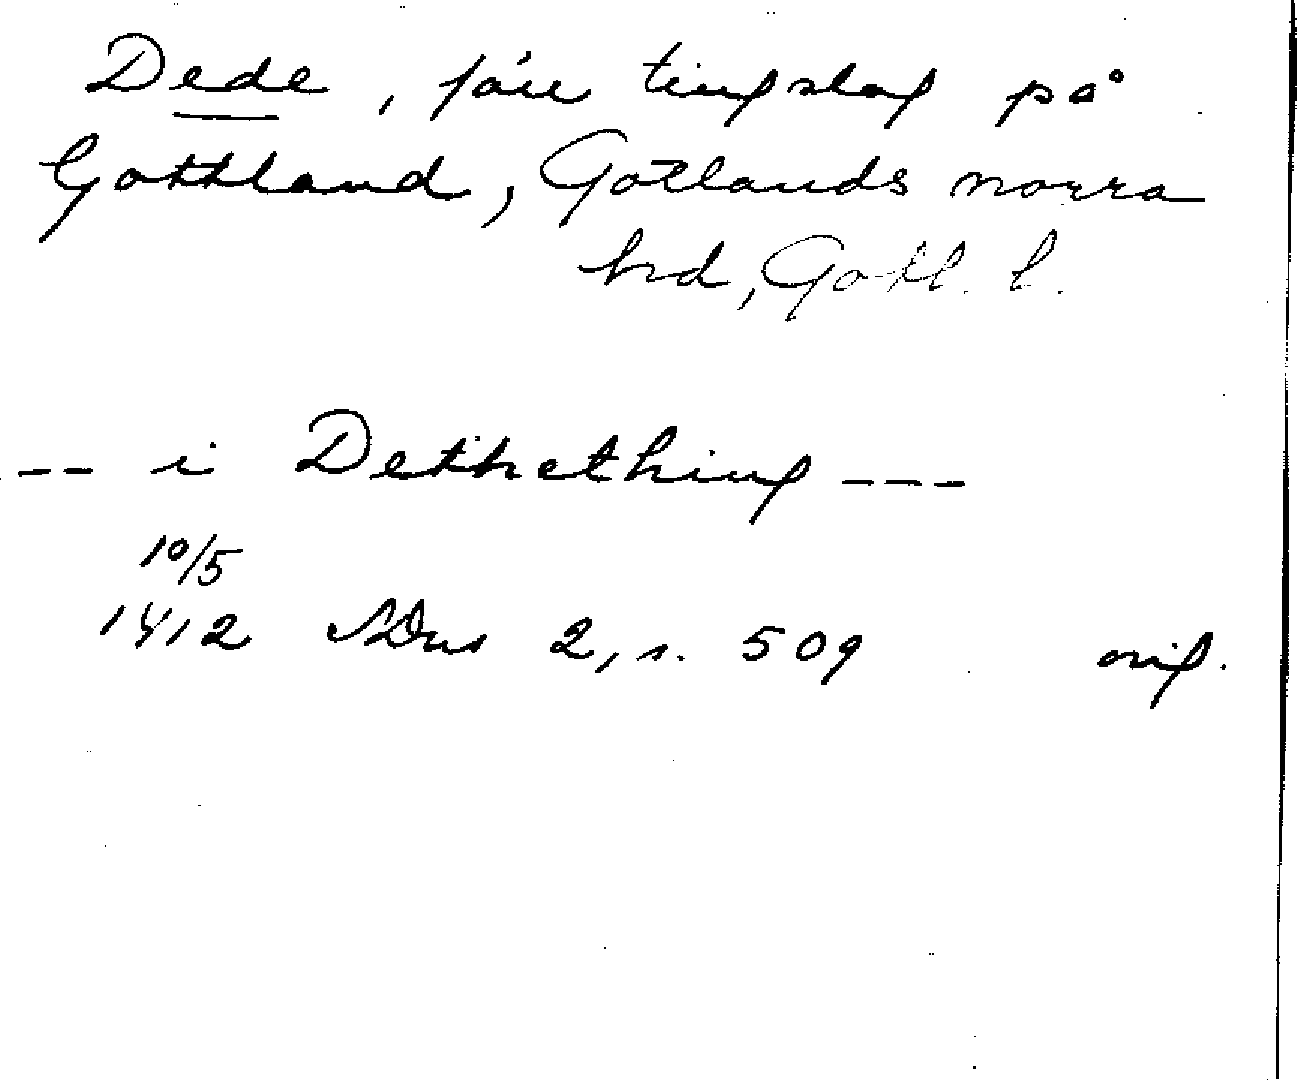 Dede, förr tingslag på
Gottland, Gotlands norra
hrd, Gotl. l.
--- i Dethething ---
10/5
1412 SDns 2, s. 509 orig.